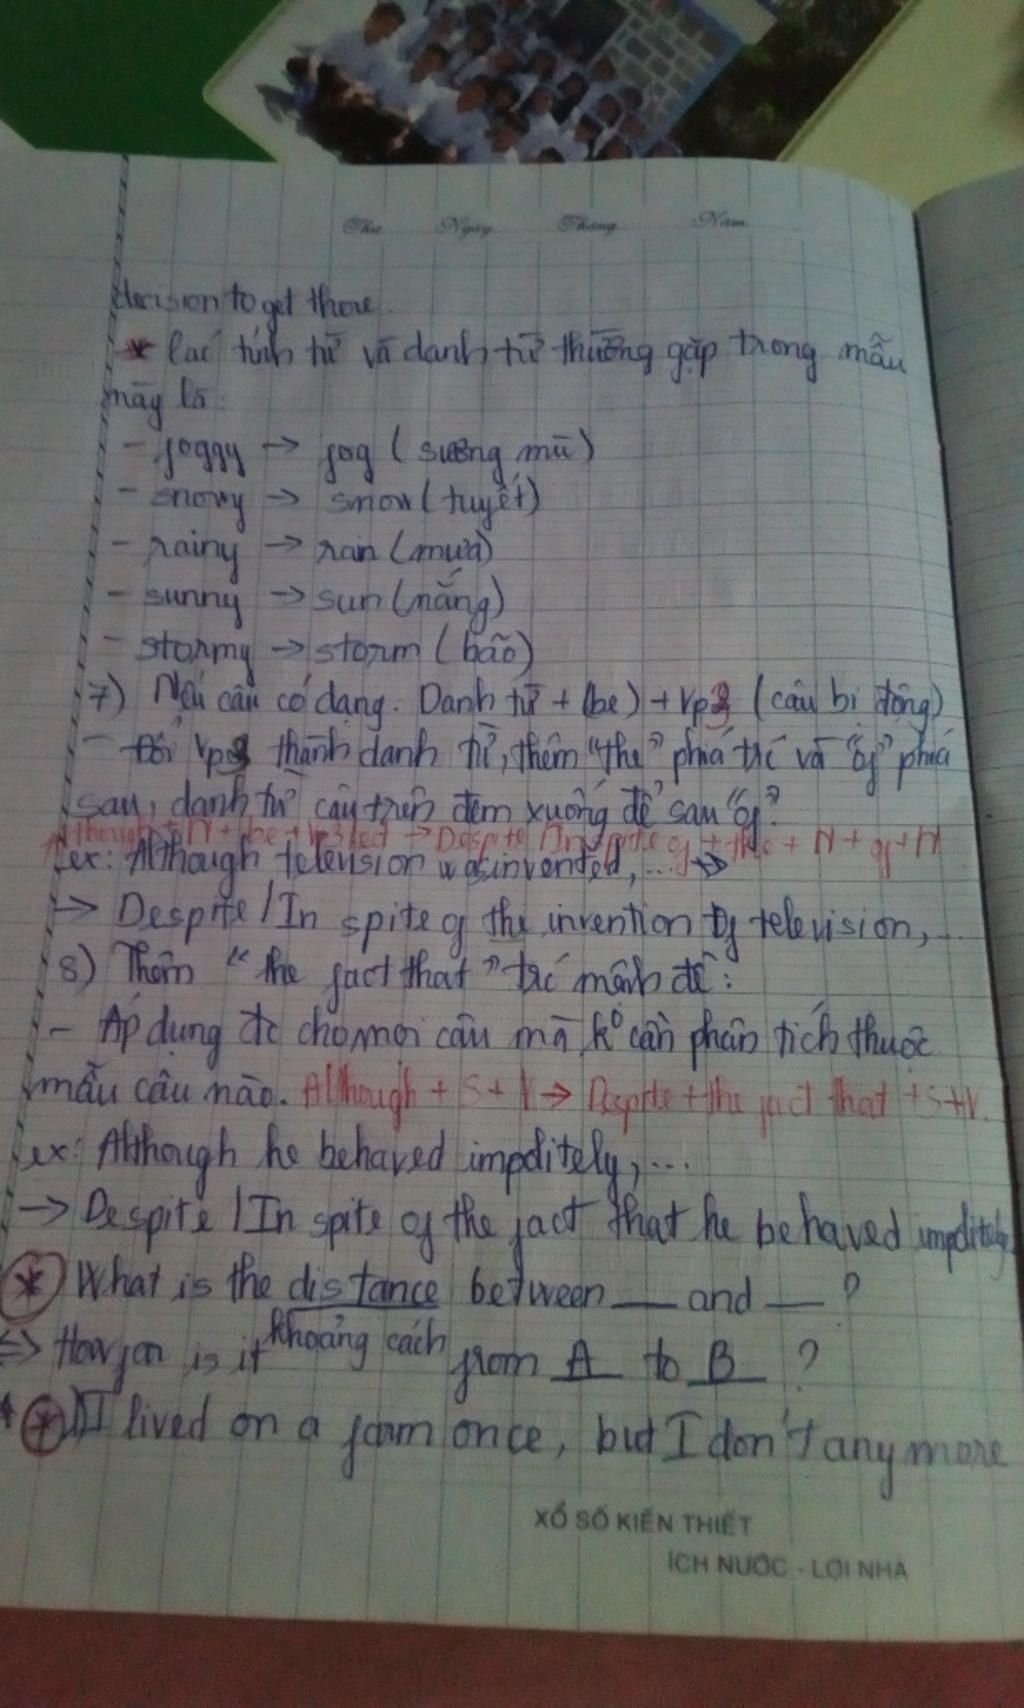 Thứ Ngày Tháng Năm
decision to get there.
* Các tính từ và danh từ thường gặp trong mẫu
này là:
- foggy → fog (sương mù)
- snowy → snow (tuyết)
- rainy → rain (mưa)
- sunny → sun (nắng)
- stormy → storm (bão)
7) Nếu câu có dạng: Danh từ + (be) + Vp3 (câu bị động)
- Đổi Vp3 thành danh từ, thêm "the" phía trc và "of" phía
sau, danh từ câu trên đem xuống để sau "of".
Although + N + be + Vp3/ed → Despite/In spite of + the + N + of + N
ex: Although television was invented,... →
→ Despite / In spite of the invention of television,...
8) Thêm "the fact that" trc mệnh đề:
- Áp dụng đc cho mọi câu mà k° cần phân tích thuộc
mẫu câu nào. Although + S + V → Despite + the fact that + S + V.
ex: Although he behaved impolitely,...
→ Despite / In spite of the fact that he behaved impolitely
* What is the distance between ___ and ___ ?
khoảng cách
<=> How far is it from A to B ?
* I lived on a farm once, but I don't any more
XỔ SỐ KIẾN THIẾT
ÍCH NƯỚC - LỢI NHÀ